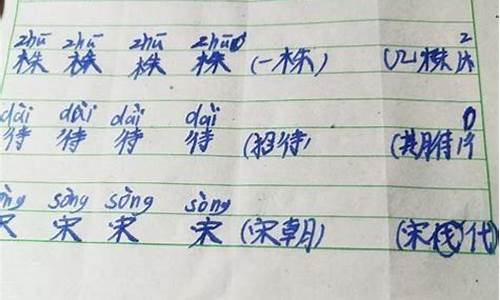 zhū zhū zhū zhū
株 株 株 株 (一株) (几株
dài dài dài dài
待 待 待 待 (招待) (期待)
sòng sòng sòng
宋 宋 宋 宋 (宋朝) (宋代)